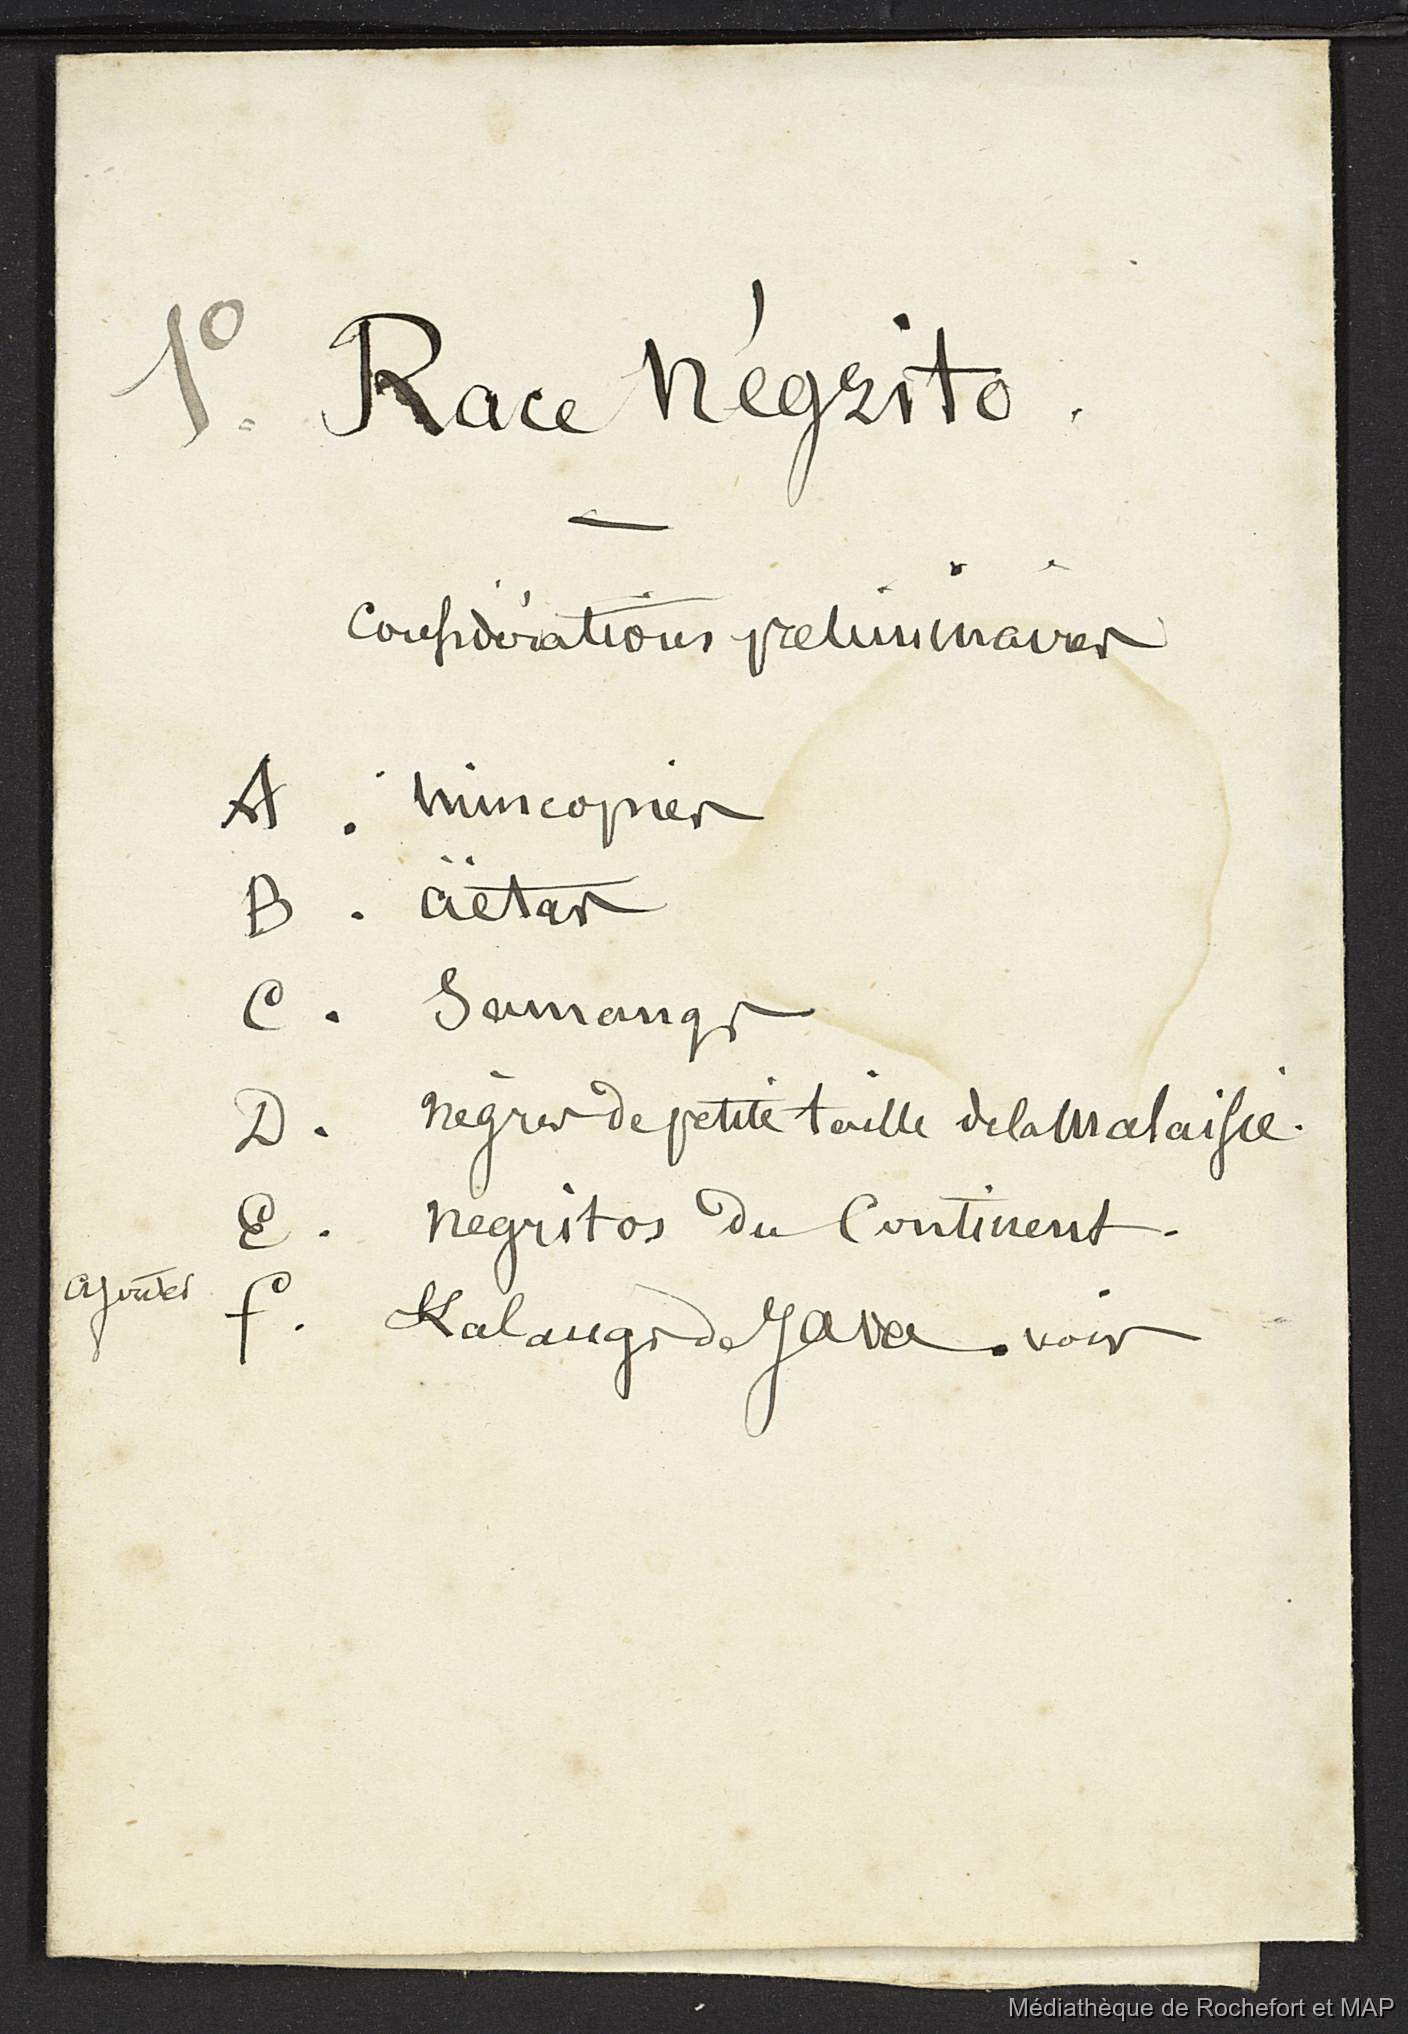 1º. Race Négrito.
Considérations preliminaires
A. Mincopies
B. Aëtas
C. Samangs
D. Nègres de petite taille de la Malaisie.
E. Negritos du Continent.
ajouter f. Kalangs de Java. voir
Médiathèque de Rochefort et MAP